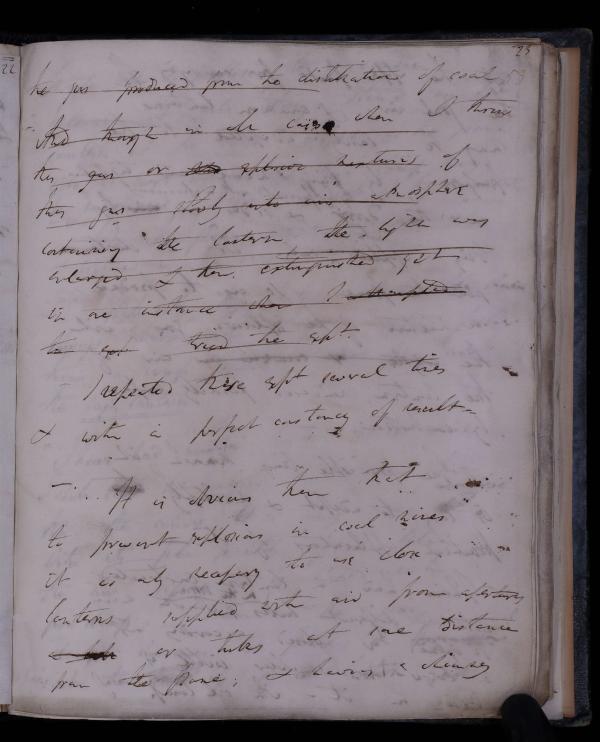 22
23
the gas produced from the distillation of coal
And though in the case when I threw
this gas or explosive mixture of
this gas slowly into an atmosphere
containing the lantern the light was
enlarged & then extinguished yet
in one instance when I attempted
tried the expt.
I repeated these expt several times
& with a perfect constancy of result =
— It is obvious then that
to prevent explosions in coal mines
it is only necessary to use close
lanterns supplied with air from apertures
or tubes at some distance
from the flame; & having a chimney